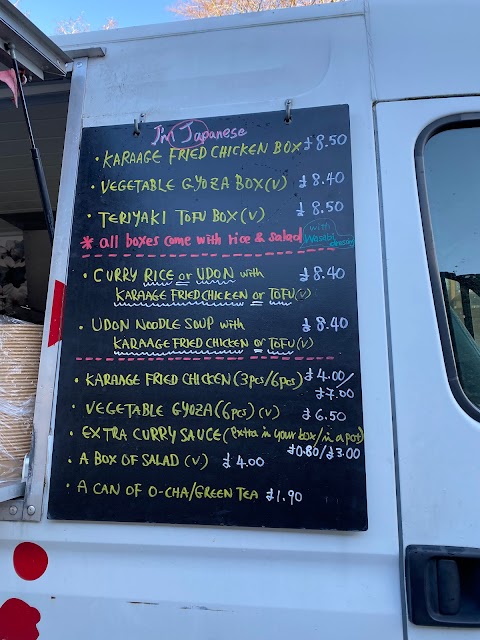 I'm Japanese
• KARAAGE FRIED CHICKEN BOX £8.50
• VEGETABLE GYOZA BOX (V) £8.40
• TERIYAKI TOFU BOX (V) £8.50
* all boxes come with rice & salad with Wasabi dressing
• CURRY RICE or UDON with £8.40
KARAAGE FRIED CHICKEN or TOFU (V)
• UDON NOODLE SOUP with £8.40
KARAAGE FRIED CHICKEN or TOFU (V)
• KARAAGE FRIED CHICKEN (3pcs/6pcs) £4.00/
£7.00
• VEGETABLE GYOZA (6pcs) (V) £6.50
• EXTRA CURRY SAUCE (Extra in your box/in a pot)
£0.80/£3.00
• A BOX OF SALAD (V) £4.00
• A CAN OF O-CHA/GREEN TEA £1.90